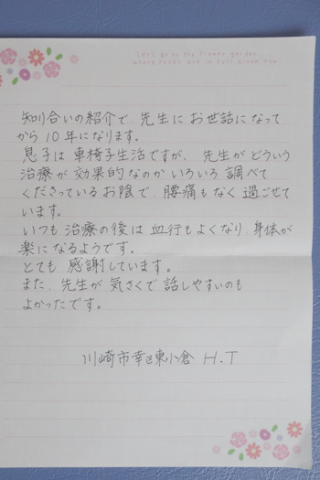 Let's go to the flower garden...
where roses are in full bloom now
知り合いの紹介で、先生にお世話になって
から10年になります。
息子は車椅子生活ですが、先生がどういう
治療が効果的なのかいろいろ調べて
くださっているお陰で、腰痛もなく過ごせて
います。
いつも治療の後は血行もよくなり、身体が
楽になるようです。
とても感謝しています。
また、先生が気さくで話しやすいのも
よかったです。
川崎市幸区東小倉 H.T